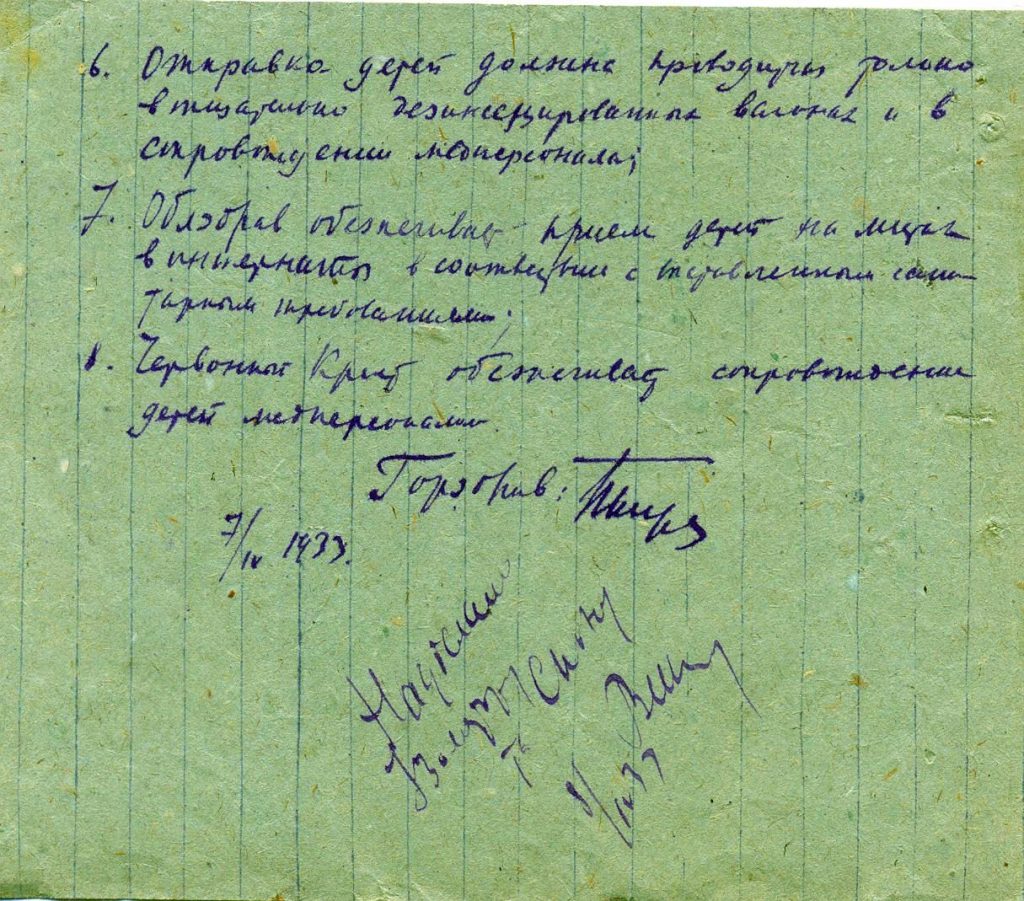 6. Отправка детей должна проводиться только
в тщательно дезинсецированных вагонах и в
сопровождении медперсонала;
7. Облздрав обеспечивает прием детей на местах
в интернаты в соответствии с поставленным сани-
тарным требованиям;
8. Червонный Крест обеспечивает сопровождение
детей медперсоналом.
Горздрав:
7/IV 1933.
8/IV 33